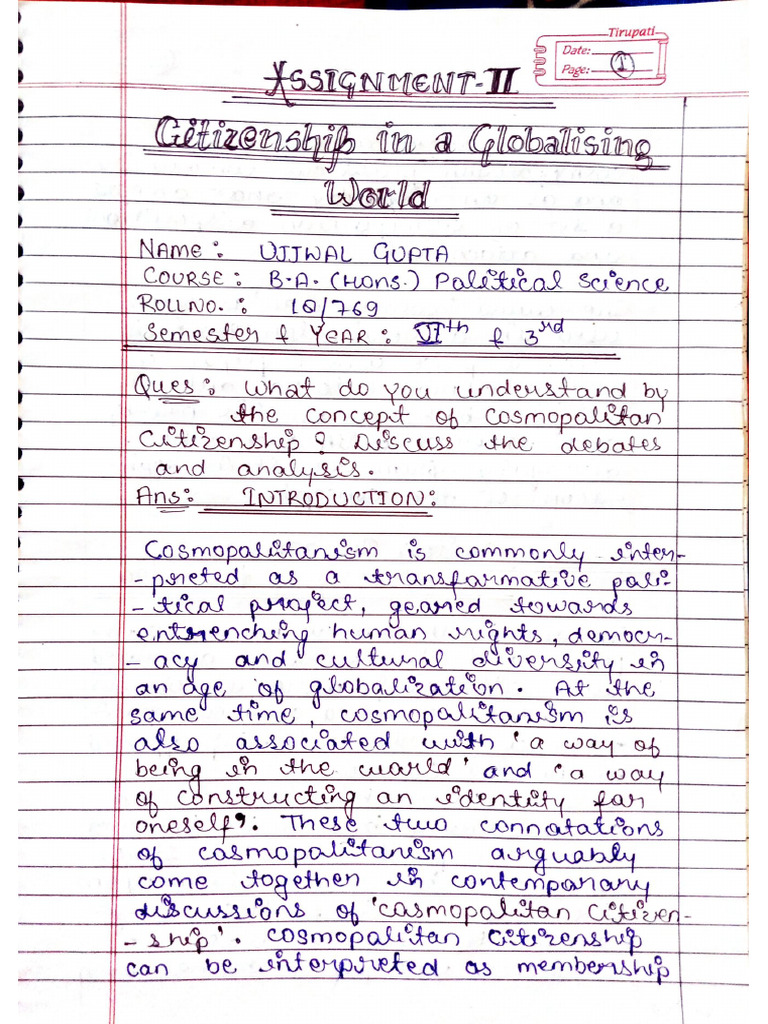 Tirupati
Date:
Page: 1
ASSIGNMENT-II
Citizenship in a Globalising
World
NAME: UJJWAL GUPTA
COURSE: B.A. (HONS.) Political Science
ROLLNO.: 18/769
Semester & YEAR: VIth & 3rd
Ques: What do you understand by
the concept of Cosmopolitan
Citizenship? Discuss the debates
and analysis.
Ans: INTRODUCTION:
Cosmopolitanism is commonly inter-
-preted as a transformative poli-
-tical project, geared towards
entrenching human rights, democr-
-acy and cultural diversity in
an age of globalization. At the
same time, cosmopolitanism is
also associated with 'a way of
being in the world' and 'a way
of constructing an identity for
oneself'. These two connotations
of cosmopolitanism arguably
come together in contemporary
discussions of 'cosmopolitan citizen-
-ship'. Cosmopolitan citizenship
can be interpreted as membership